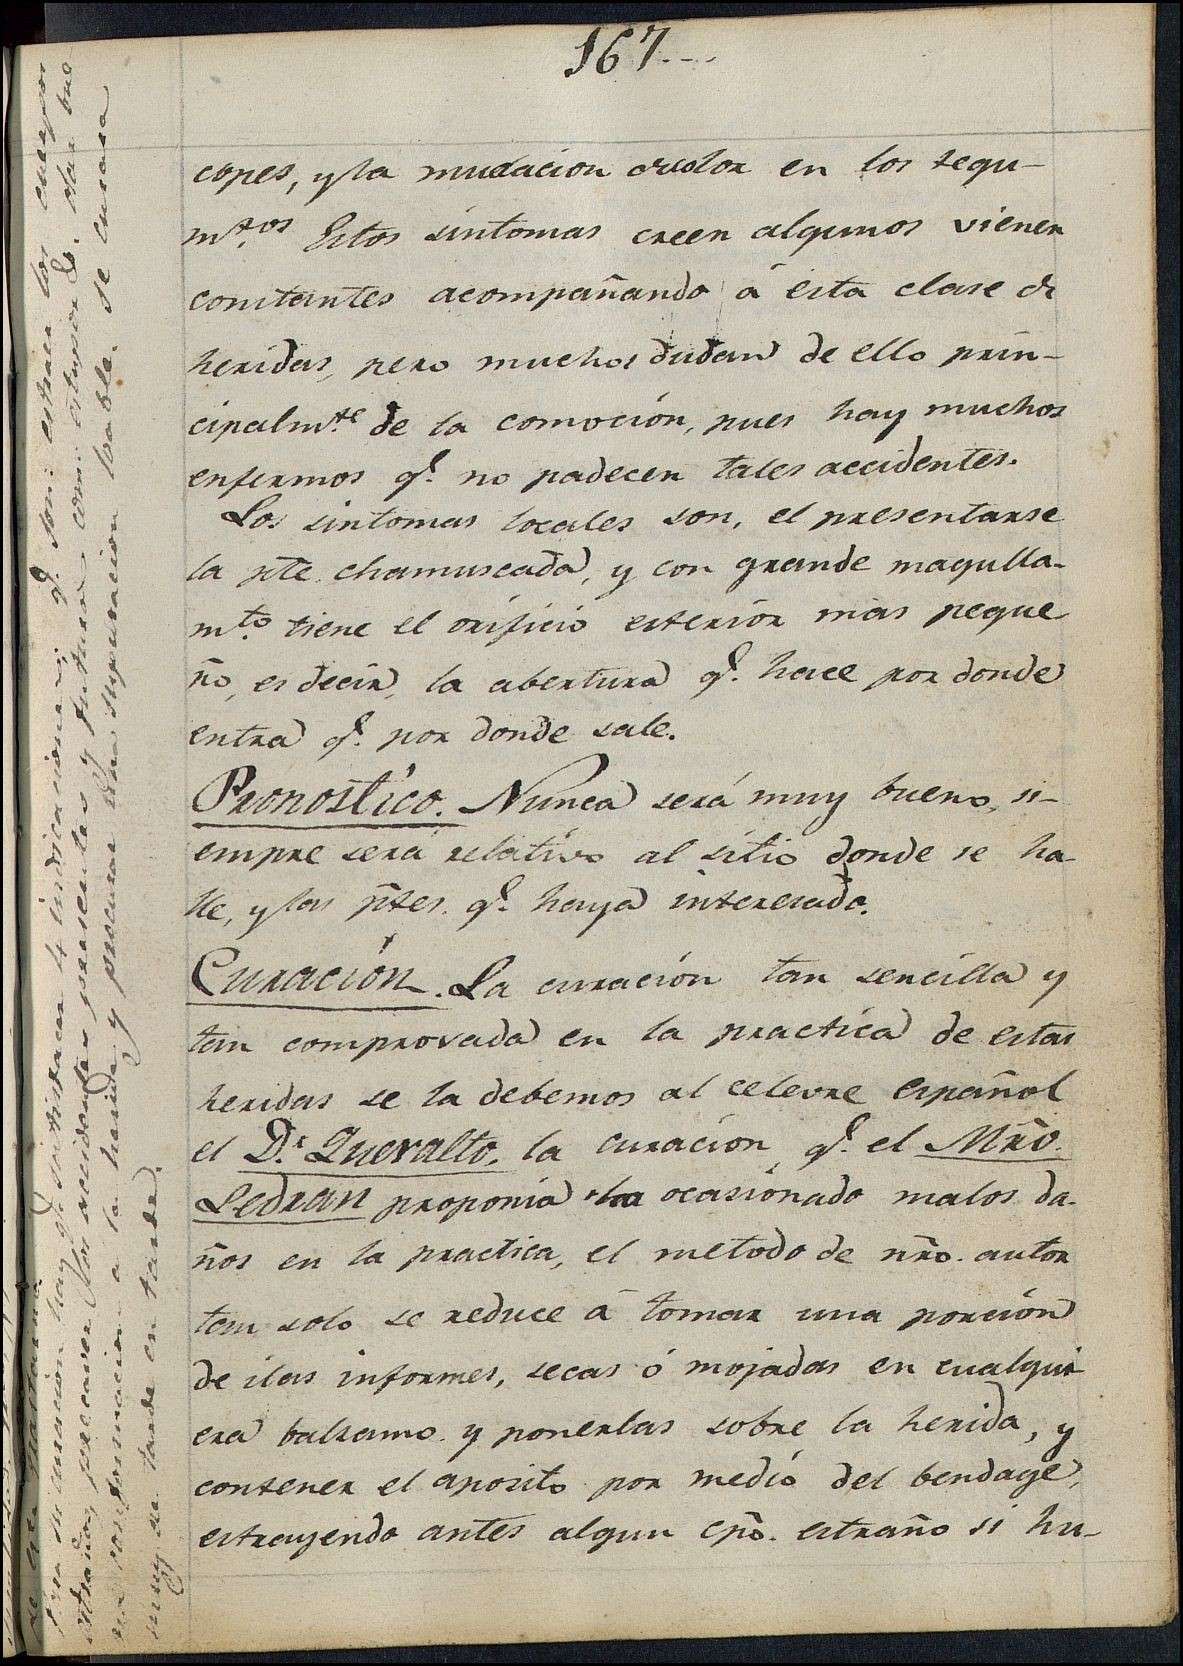 167...
copes, y la mudacion de color en los tegu-
mtos Estos síntomas creen algunos vienen
constantes acompañando á esta clase de
heridas, pero muchos dudan de ello prin-
cipalmte de la comoción, pues hay muchos
enfermos q.e no padecen tales accidentes.
Los sintomas locales son, el presentarse
la pte. chamuscada, y con grande magulla-
mto. tiene el orificio esterior mas peque
ño, es decir, la abertura q.e hace por donde
entra q.e por donde sale.
Pronostico. Nunca será muy bueno, si-
empre será relativo al sitio donde se ha-
lle, y las ptes. q.e haya interesado.
Curación. La curación tan sencilla y
tan comprovada en la practica de estas
heridas se la debemos al celevre español
el D.r Queralto, la curacion q.e el Mro.
Ledran proponia ha ocasionado malos da-
ños en la practica, el metodo de nro. autor
tan solo se reduce á tomar una porción
de ilas informes, secas ó mojadas en cualqui
era balsamo y ponerlas sobre la herida, y
contener el aposito por medio del bendage,
estrayendo antes algun cpo. estraño si hu-
curacion hay q.e satisfacer 4 indicaciones; q.e son: estraer los cuerpos
estraños, precaver los accidentes presentes y futuros
conformacion a la herida y procurar una supuracion loable. se curara
muy de tarde en tarde.